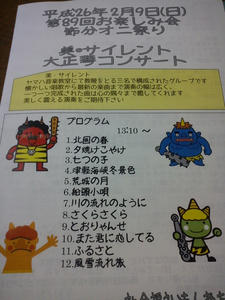 平成26年2月9日(日)
第89回お楽しみ会
節分オニ祭り
美・サイレント
大正琴コンサート
美・サイレント
ヤマハ音楽教室にて教鞭をとる三名で構成されたグループです
懐かしい唱歌から最新の楽曲まで演奏の幅は広く、
一つ一つ完成された曲は心の隅々まで癒してくれます
美しく震える演奏をご期待下さい
プログラム
13:10 ~
1.北国の春
2.夕焼けこやけ
3.七つの子
4.津軽海峡冬景色
5.荒城の月
6.船頭小唄
7.川の流れのように
8.さくらさくら
9.とおりゃんせ
10.また君に恋してる
11.ふるさと
12.風雪ながれ旅